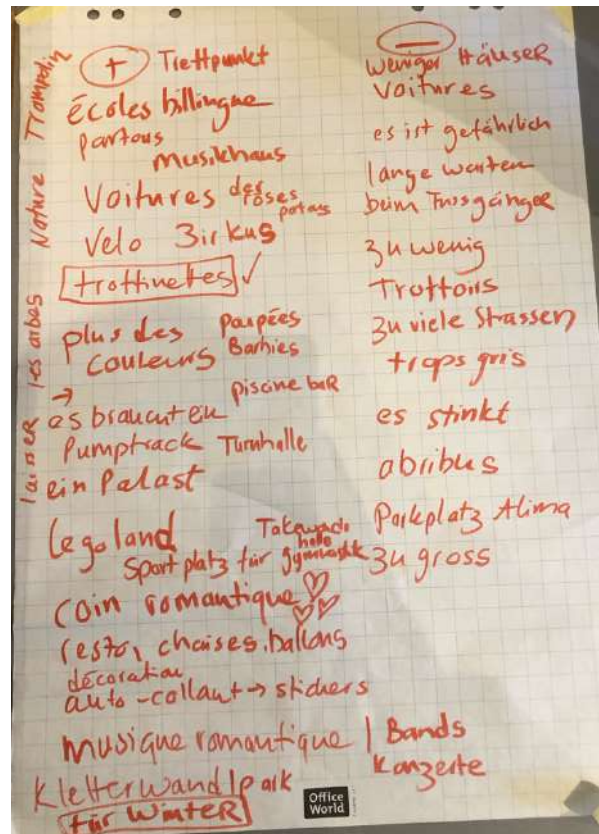 + Trettpunkt
écoles billingue
partous
musikhaus
Voitures des roses
potags
Velo Zirkus
trottinettes ✓
plus des
couleurs
Poupées
Barbies
piscine baR
→
es braucht ein
Pumptrack Turnhalle
ein Palast
Legoland
halle
Sportplatz für gymnastik
coin romantique
resto, chaises, ballons
décoration
auto-collant → stickers
musique romantique | Bands
Konzerte
Kletterwand/park
für WinteR
Nature Trampolin
les arbes
−
weniger HäuseR
Voitures
es ist gefährlich
lange warten
beim Fussgänger
zu wenig
Trottoirs
zu viele Strassen
trops gris
es stinkt
abribus
Parkplatz Alima
zu gross
Office
World